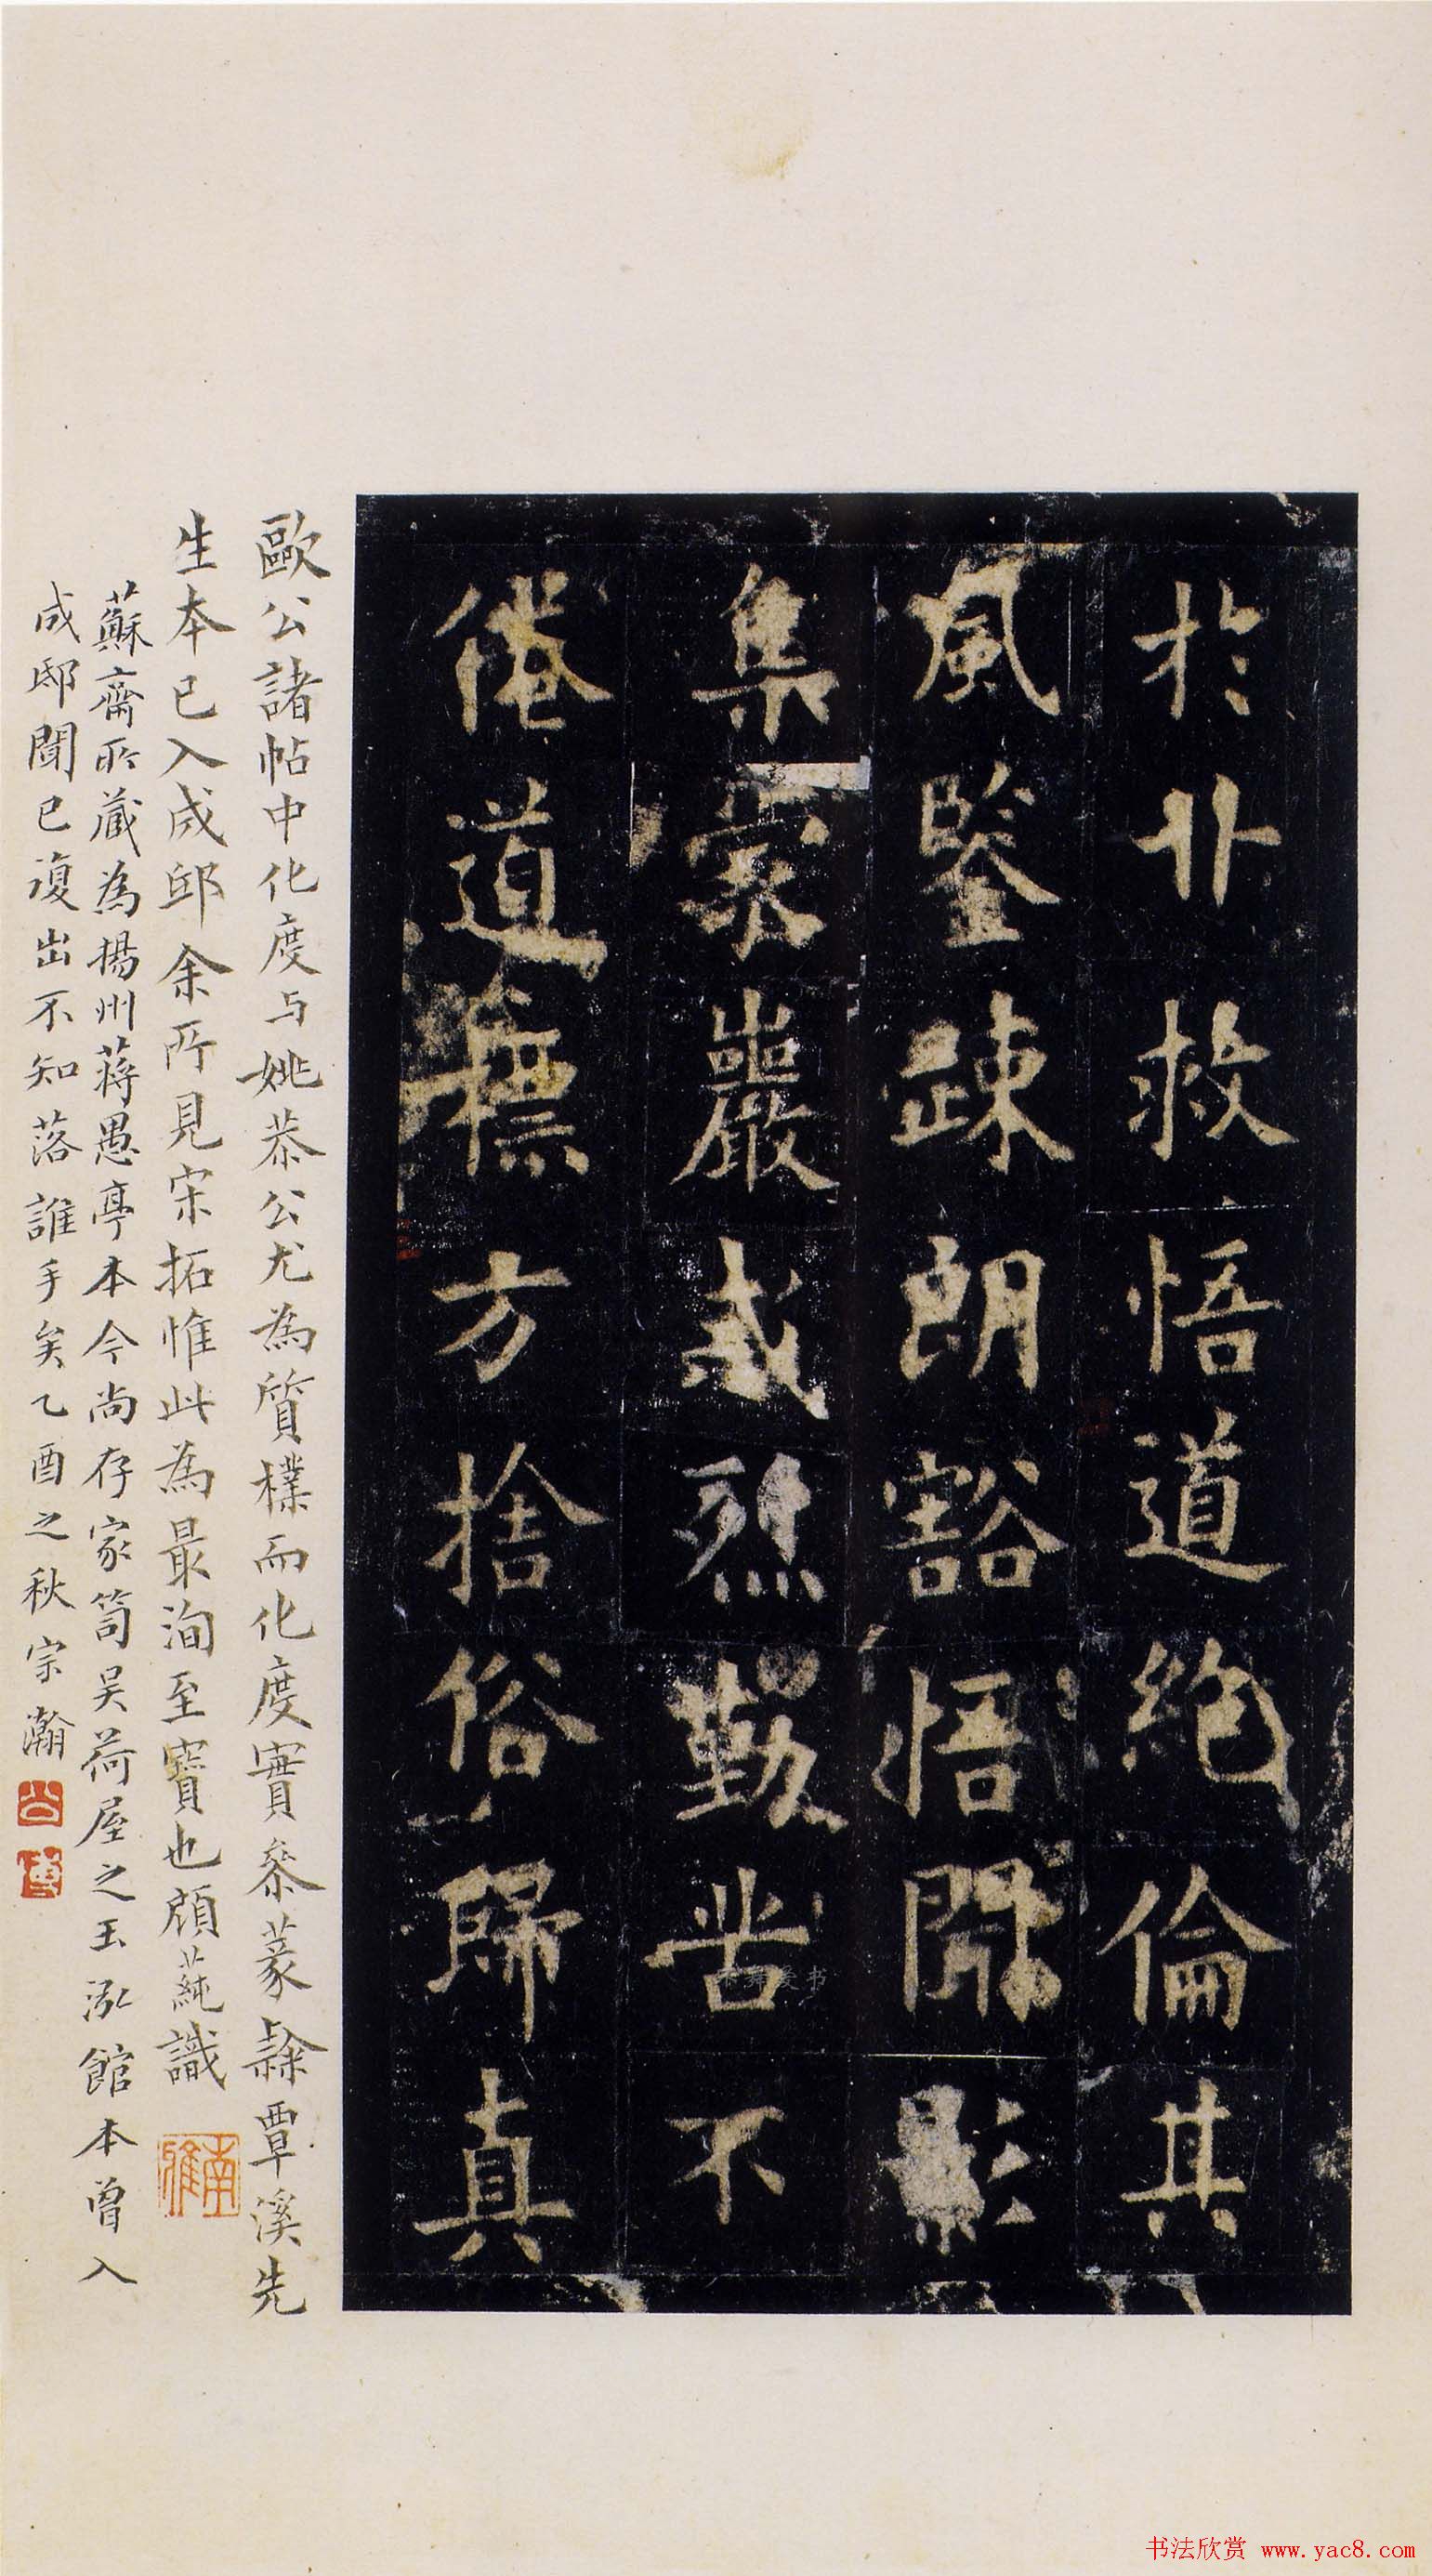 於救悟道絕倫其
風鑒疎朗豁悟開影
集家巖感烈勤苦不
倦道標方捨俗歸真
歐公諸帖中化度與姚恭公尤為質樸而化度實參篆隸覃溪先
生本已入成邸余所見宋拓惟此為最洵至寶也顧蒓識
南雅
蘇齋所藏為揚州蔣愚亭本今尚存家笥吳荷屋之玉泓館本曾入
成邸聞已復出不知落誰手矣乙酉之秋宗瀚
公博
书法欣赏 www.yac8.com